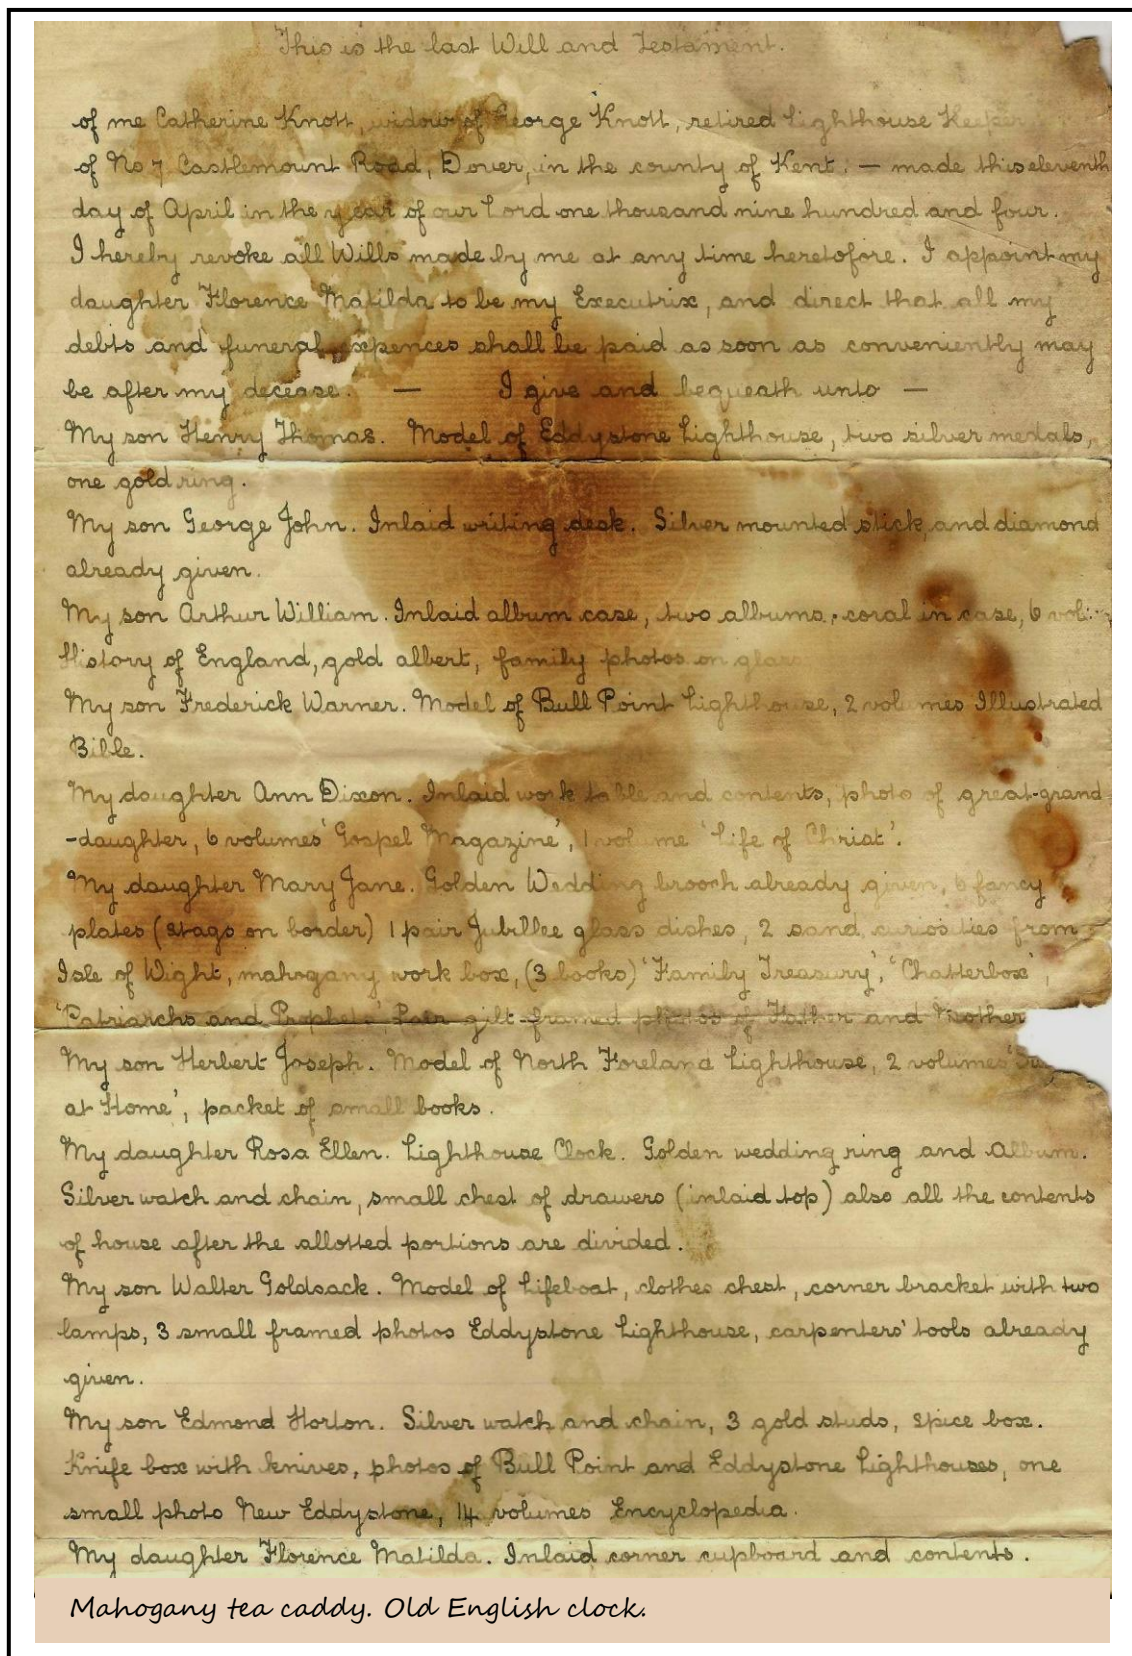 This is the last Will and Testament.
of me Catherine Knott, widow of George Knott, retired Lighthouse Keeper
of No 7 Castlemount Road, Dover, in the county of Kent. — made this eleventh
day of April in the year of our Lord one thousand nine hundred and four.
I hereby revoke all Wills made by me at any time heretofore. I appoint my
daughter Florence Matilda to be my Executrix, and direct that all my
debts and funeral expences shall be paid as soon as conveniently may
be after my decease. — I give and bequeath unto —
My son Henry Thomas. Model of Eddystone Lighthouse, two silver medals,
one gold ring.
My son George John. Inlaid writing desk. Silver mounted stick, and diamond
already given.
My son Arthur William. Inlaid album case, two albums, coral in case, 6 vol:
History of England, gold albert, family photos on glass
My son Frederick Warner. Model of Bull Point Lighthouse, 2 volumes Illustrated
Bible.
My daughter Ann Dixon. Inlaid work table and contents, photo of great-grand
-daughter, 6 volumes 'Gospel Magazine', 1 volume 'Life of Christ'.
My daughter Mary Jane. Golden Wedding brooch already given, 6 fancy
plates (stags on border) 1 pair Jubillee glass dishes, 2 sand curiosities from
Isle of Wight, mahogany work box, (3 books) 'Family Treasury', 'Chatterbox',
'Patriarchs and Prophets', Pair gilt-framed photos of Father and Mother
My son Herbert Joseph. Model of North Foreland Lighthouse, 2 volumes
at Home', packet of small books.
My daughter Rosa Ellen. Lighthouse Clock. Golden wedding ring and Album.
Silver watch and chain, small chest of drawers (inlaid top) also all the contents
of house after the allotted portions are divided.
My son Walter Goldsack. Model of Lifeboat, clothes chest, corner bracket with two
lamps, 3 small framed photos Eddystone Lighthouse, carpenters' tools already
given.
My son Edmond Horton. Silver watch and chain, 3 gold studs, spice box.
Knife box with knives, photos of Bull Point and Eddystone Lighthouses, one
small photo New Eddystone, 14 volumes Encyclopedia.
My daughter Florence Matilda. Inlaid corner cupboard and contents.
Mahogany tea caddy. Old English clock.